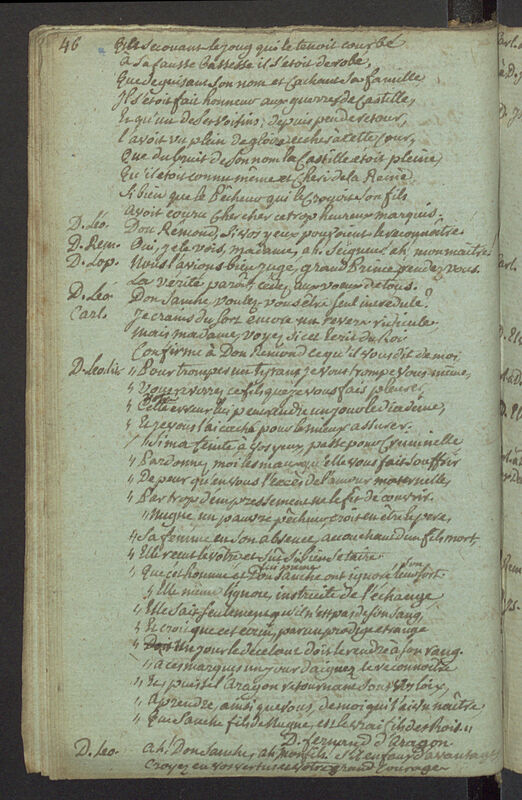 46 qu'il secouant le joug qui le tenoit courbé
à sa fausse Bassesse il s'etoit derobé,
Que deguisant son nom et Cachant sa famille,
Il s'étoit fait honneur aux guerres de Castille,
Et qu'un de ses voisins, depuis peu de retour,
l'avoit vu plein de gloire à cette Cour,
Que du bruit de son nom la Castille etoit pleine
Qu'il etoit connu même et Cheri de la Reine
Si bien que le Pêcheur qui le Croyoit son fils
avoit couru Chercher ce trop heureux marquis.
D. Léo. Don Remond, si vos yeux pouvoient le reconnoître
D. Rem. Oui, je le vois, madame, ah Seigneur, ah mon maître!
D. Lop. Nous l'avions bien jugé, grand Prince rendez vous.
La verité paroît, cedez aux voeux de tous.
D. Léo. Don Sanche voulez vous être seul incredule?
Carl. Je crains du sort encore un revers ridicule
mais madame, voyez si cet Ecrit du Roi
Confirme à Don Remond ce qu'il vous dit de moi
D. Leo. lit " Pour tromper un tyran je vous trompe vous même,
" Vous reverrez ce fils que je vous fais pleurer,
" Cette erreur lui peut rendre un jour le diadême,
" Et je vous l'ai caché pour le mieux assurer.
" Si ma feinte à vos yeux, passe pour Criminelle
" Pardonnez moi les maux qu'elle vous fait souffrir
" De peur qu'en vous l'excès de l'amour maternelle
" Par trop d'empressement ne le fit decouvrir.
" Nugne, un pauvre pêcheur, croit en être le pere,
" Sa femme en son absence, accouchant d'un fils mort
" Elle reçut le votre et sut si bien se taire
" Que cet homme et Don Sanche ont ignoré son sort
" Elle même ignore, instruite de l'échange
" Elle sait seulement qu'il n'est pas de son sang
" Et croit que cet ecrin, par un prodige étrange
" Doit un jour le declarer doit le rendre à son rang.
" à ces marques un jour daignez le reconnoître
" Et puisse l'Aragon retournant sous vos loix,
" Aprendre, ainsi que vous, de moi qui l'ai vu naître
" Que Sanche fils de Nugne, est le vrai fils des Rois. "
D. fernand d'Aragon
D. Leo. ah! Don Sanche, ah, mon fils
Croyez en vos vertus et votre grand Courage